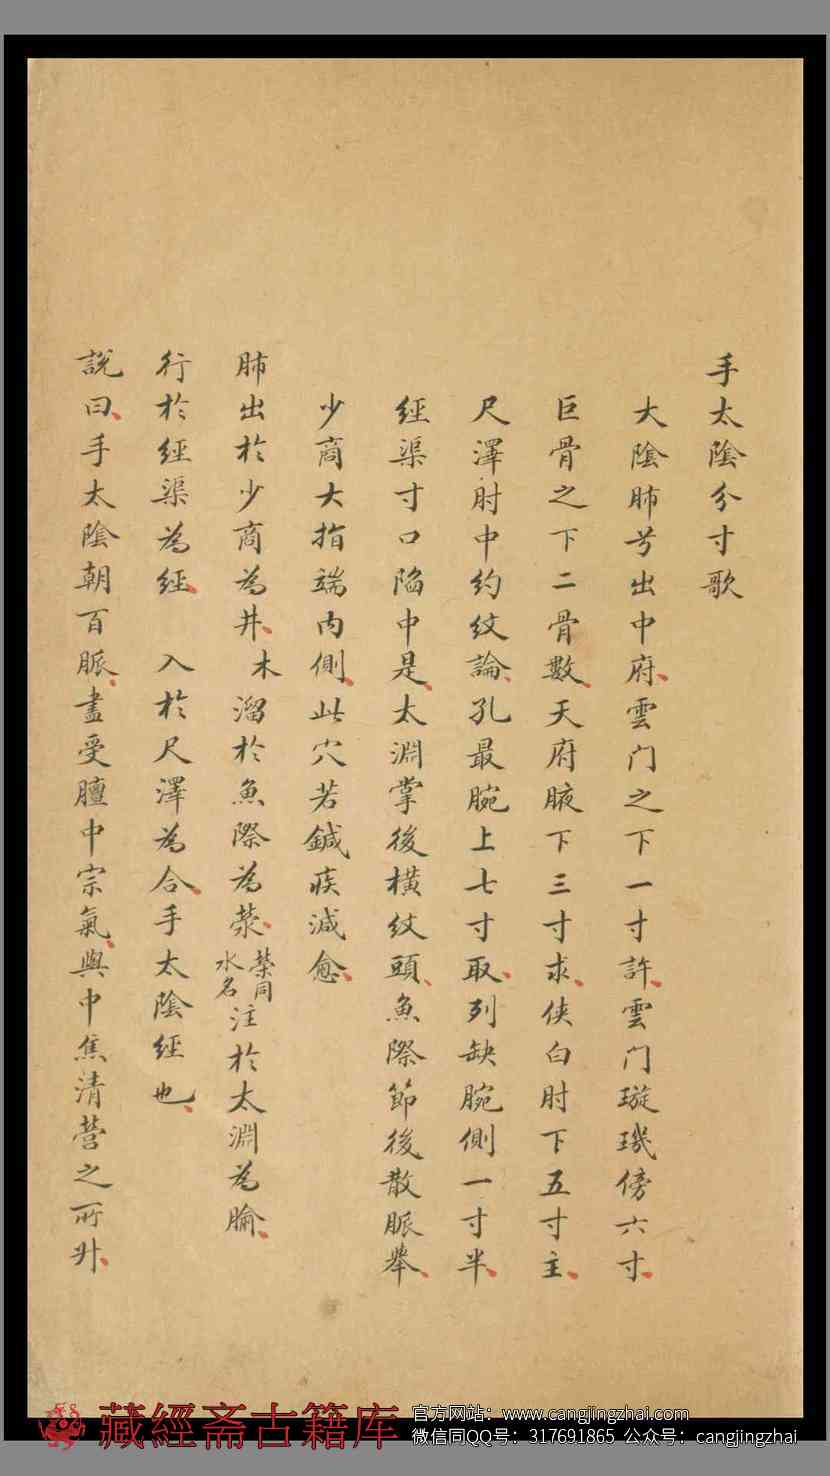 手太陰分寸歌
大陰肺兮出中府雲门之下一寸許雲门璇璣傍六寸
巨骨之下二骨數天府腋下三寸求侠白肘下五寸主
尺澤肘中約紋論孔最腕上七寸取列缺腕側一寸半
經渠寸口陷中是太淵掌後橫紋頭魚際節後散脈舉
少商大指端内側此穴若鍼疾減愈
肺出於少商為井木溜於魚際為滎滎同水名注於太淵為腧
行於經渠為經 入於尺澤為合手太陰經也
説曰手太陰朝百脈盡受膻中宗氣與中焦清營之所升
藏經斋古籍库
官方网站：www.cangjingzhai.com
微信同QQ号：317691865 公众号：cangjingzhai